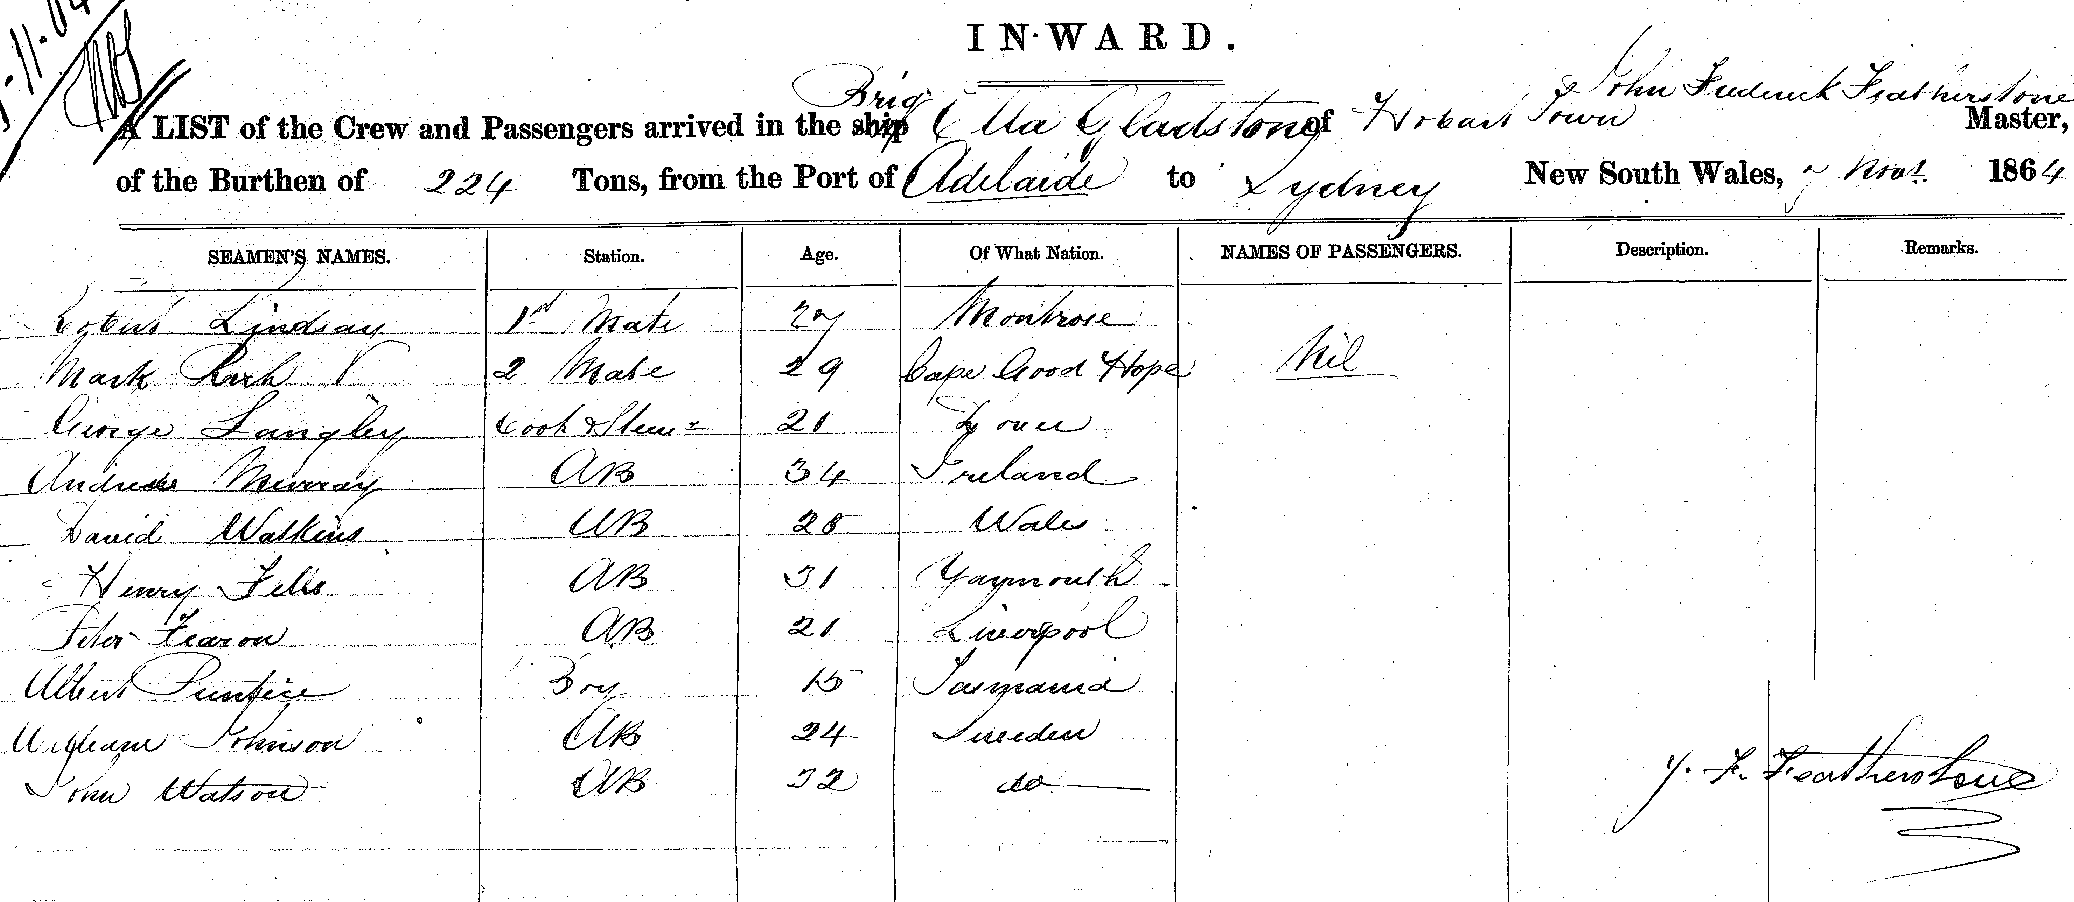 INWARD.
Brig John Frederick Featherstone
A LIST of the Crew and Passengers arrived in the ship Ella Gladstone of Hobart Town Master,
of the Burthen of 224 Tons, from the Port of Adelaide to Sydney New South Wales, 7 Novr. 1864
SEAMEN'S NAMES. Station. Age. Of What Nation. NAMES OF PASSENGERS. Description. Remarks.
Robert Lindsay 1st Mate 27 Montrose
Mark 2 Mate 29 Cape Good Hope Nil
George Langley Cook & Stew 21 Dover
Andrew Murray AB 34 Ireland
David Watkins AB 28 Wales
Henry Fells AB 31 Yarmouth
Peter Fearon AB 21 Liverpool
Albert Boy 15 Tasmania
William Johnson AB 24 Sweden
John Watson AB 32 do
J. F. Featherstone